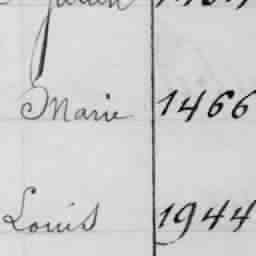 Marie 1466
Louis 1944